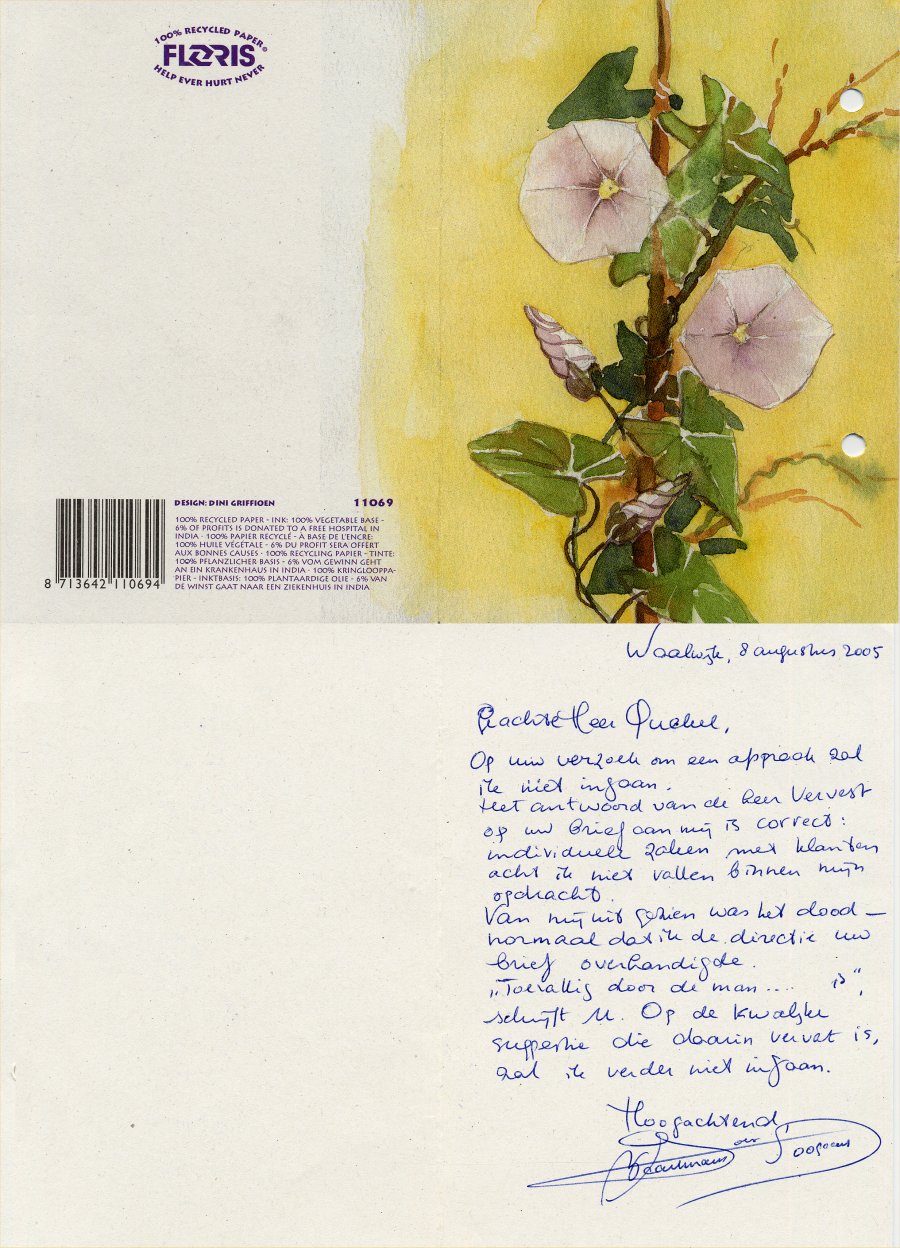 100% RECYCLED PAPER
FLORIS®
HELP EVER HURT NEVER
DESIGN: DINI GRIFFIOEN 11069
100% RECYCLED PAPER - INK: 100% VEGETABLE BASE -
6% OF PROFITS IS DONATED TO A FREE HOSPITAL IN
INDIA · 100% PAPIER RECYCLÉ - À BASE DE L'ENCRE:
100% HUILE VÉGÉTALE - 6% DU PROFIT SERA OFFERT
AUX BONNES CAUSES · 100% RECYCLING PAPIER - TINTE:
100% PFLANZLICHER BASIS - 6% VOM GEWINN GEHT
AN EIN KRANKENHAUS IN INDIA · 100% KRINGLOOPPA-
PIER - INKTBASIS: 100% PLANTAARDIGE OLIE - 6% VAN
DE WINST GAAT NAAR EEN ZIEKENHUIS IN INDIA
8 713642 110694
Waalwijk, 8 augustus 2005
Geachte Heer Quekel,
Op uw verzoek om een afspraak zal
ik niet ingaan.
Het antwoord van de heer Vervest
op uw brief aan mij is correct:
individuele zaken met klanten
acht ik niet vallen binnen mijn
opdracht.
Van mij uit gezien was het dood-
normaal dat ik de directie uw
brief overhandigde.
„Toevallig door de man .... is",
schrijft U. Op de kwalijke
suggestie die daarin vervat is,
zal ik verder niet ingaan.
Hoogachtend,